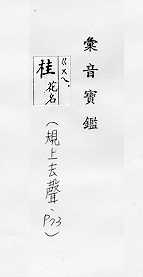 彙音寶鑑
桂 ㄍㄨㄟˋ
花名
（規上去聲，P73）